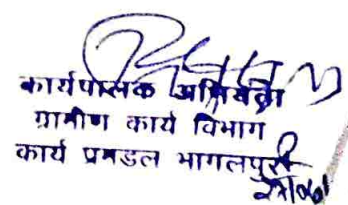 कार्यपालक अभियंता
ग्रामीण कार्य विभाग
कार्य प्रमंडल भागलपुर